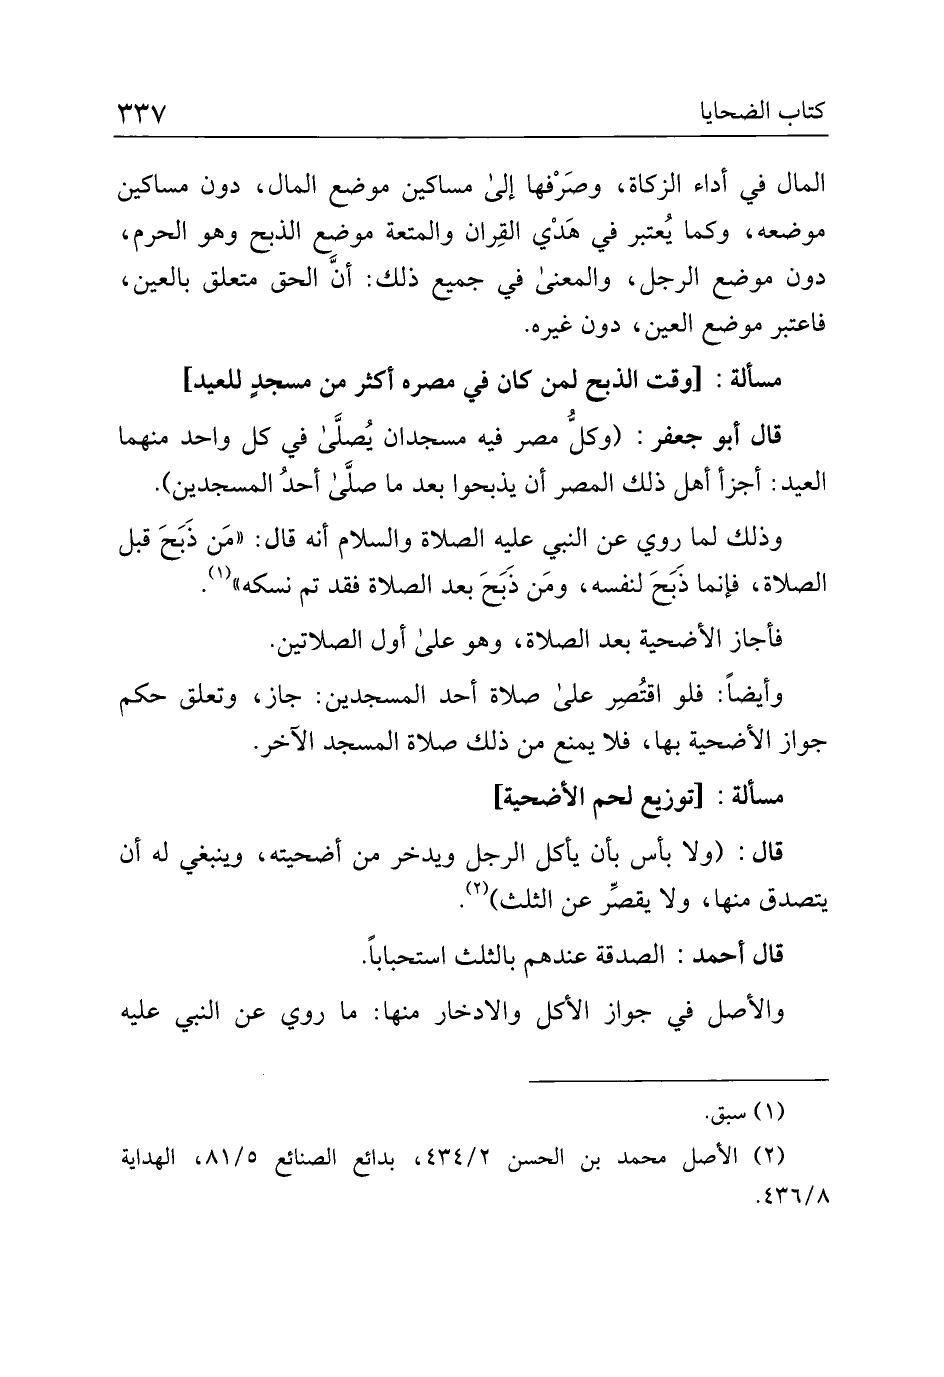 كتاب الضحايا ٣٣٧
المال في أداء الزكاة، وصَرْفها إلىٰ مساكين موضع المال، دون مساكين
موضعه، وكما يُعتبر في هَدْي القِران والمتعة موضع الذبح وهو الحرم،
دون موضع الرجل، والمعنىٰ في جميع ذلك: أنَّ الحق متعلق بالعين،
فاعتبر موضع العين، دون غيره.
مسألة : [وقت الذبح لمن كان في مصره أكثر من مسجدٍ للعيد]
قال أبو جعفر : (وكلُّ مصر فيه مسجدان يُصلَّىٰ في كل واحد منهما
العيد: أجزأ أهل ذلك المصر أن يذبحوا بعد ما صلَّىٰ أحدُ المسجدين).
وذلك لما روي عن النبي عليه الصلاة والسلام أنه قال: «مَن ذَبَحَ قبل
الصلاة، فإنما ذَبَحَ لنفسه، ومَن ذَبَحَ بعد الصلاة فقد تم نسكه»(١).
فأجاز الأضحية بعد الصلاة، وهو علىٰ أول الصلاتين.
وأيضاً: فلو اقتُصِر علىٰ صلاة أحد المسجدين: جاز، وتعلق حكم
جواز الأضحية بها، فلا يمنع من ذلك صلاة المسجد الآخر.
مسألة : [توزيع لحم الأضحية]
قال : (ولا بأس بأن يأكل الرجل ويدخر من أضحيته، وينبغي له أن
يتصدق منها، ولا يقصِّر عن الثلث)(٢).
قال أحمد : الصدقة عندهم بالثلث استحباباً.
والأصل في جواز الأكل والادخار منها: ما روي عن النبي عليه
(١) سبق.
(٢) الأصل محمد بن الحسن ٤٣٤/٢، بدائع الصنائع ٨١/٥، الهداية
٤٣٦/٨.